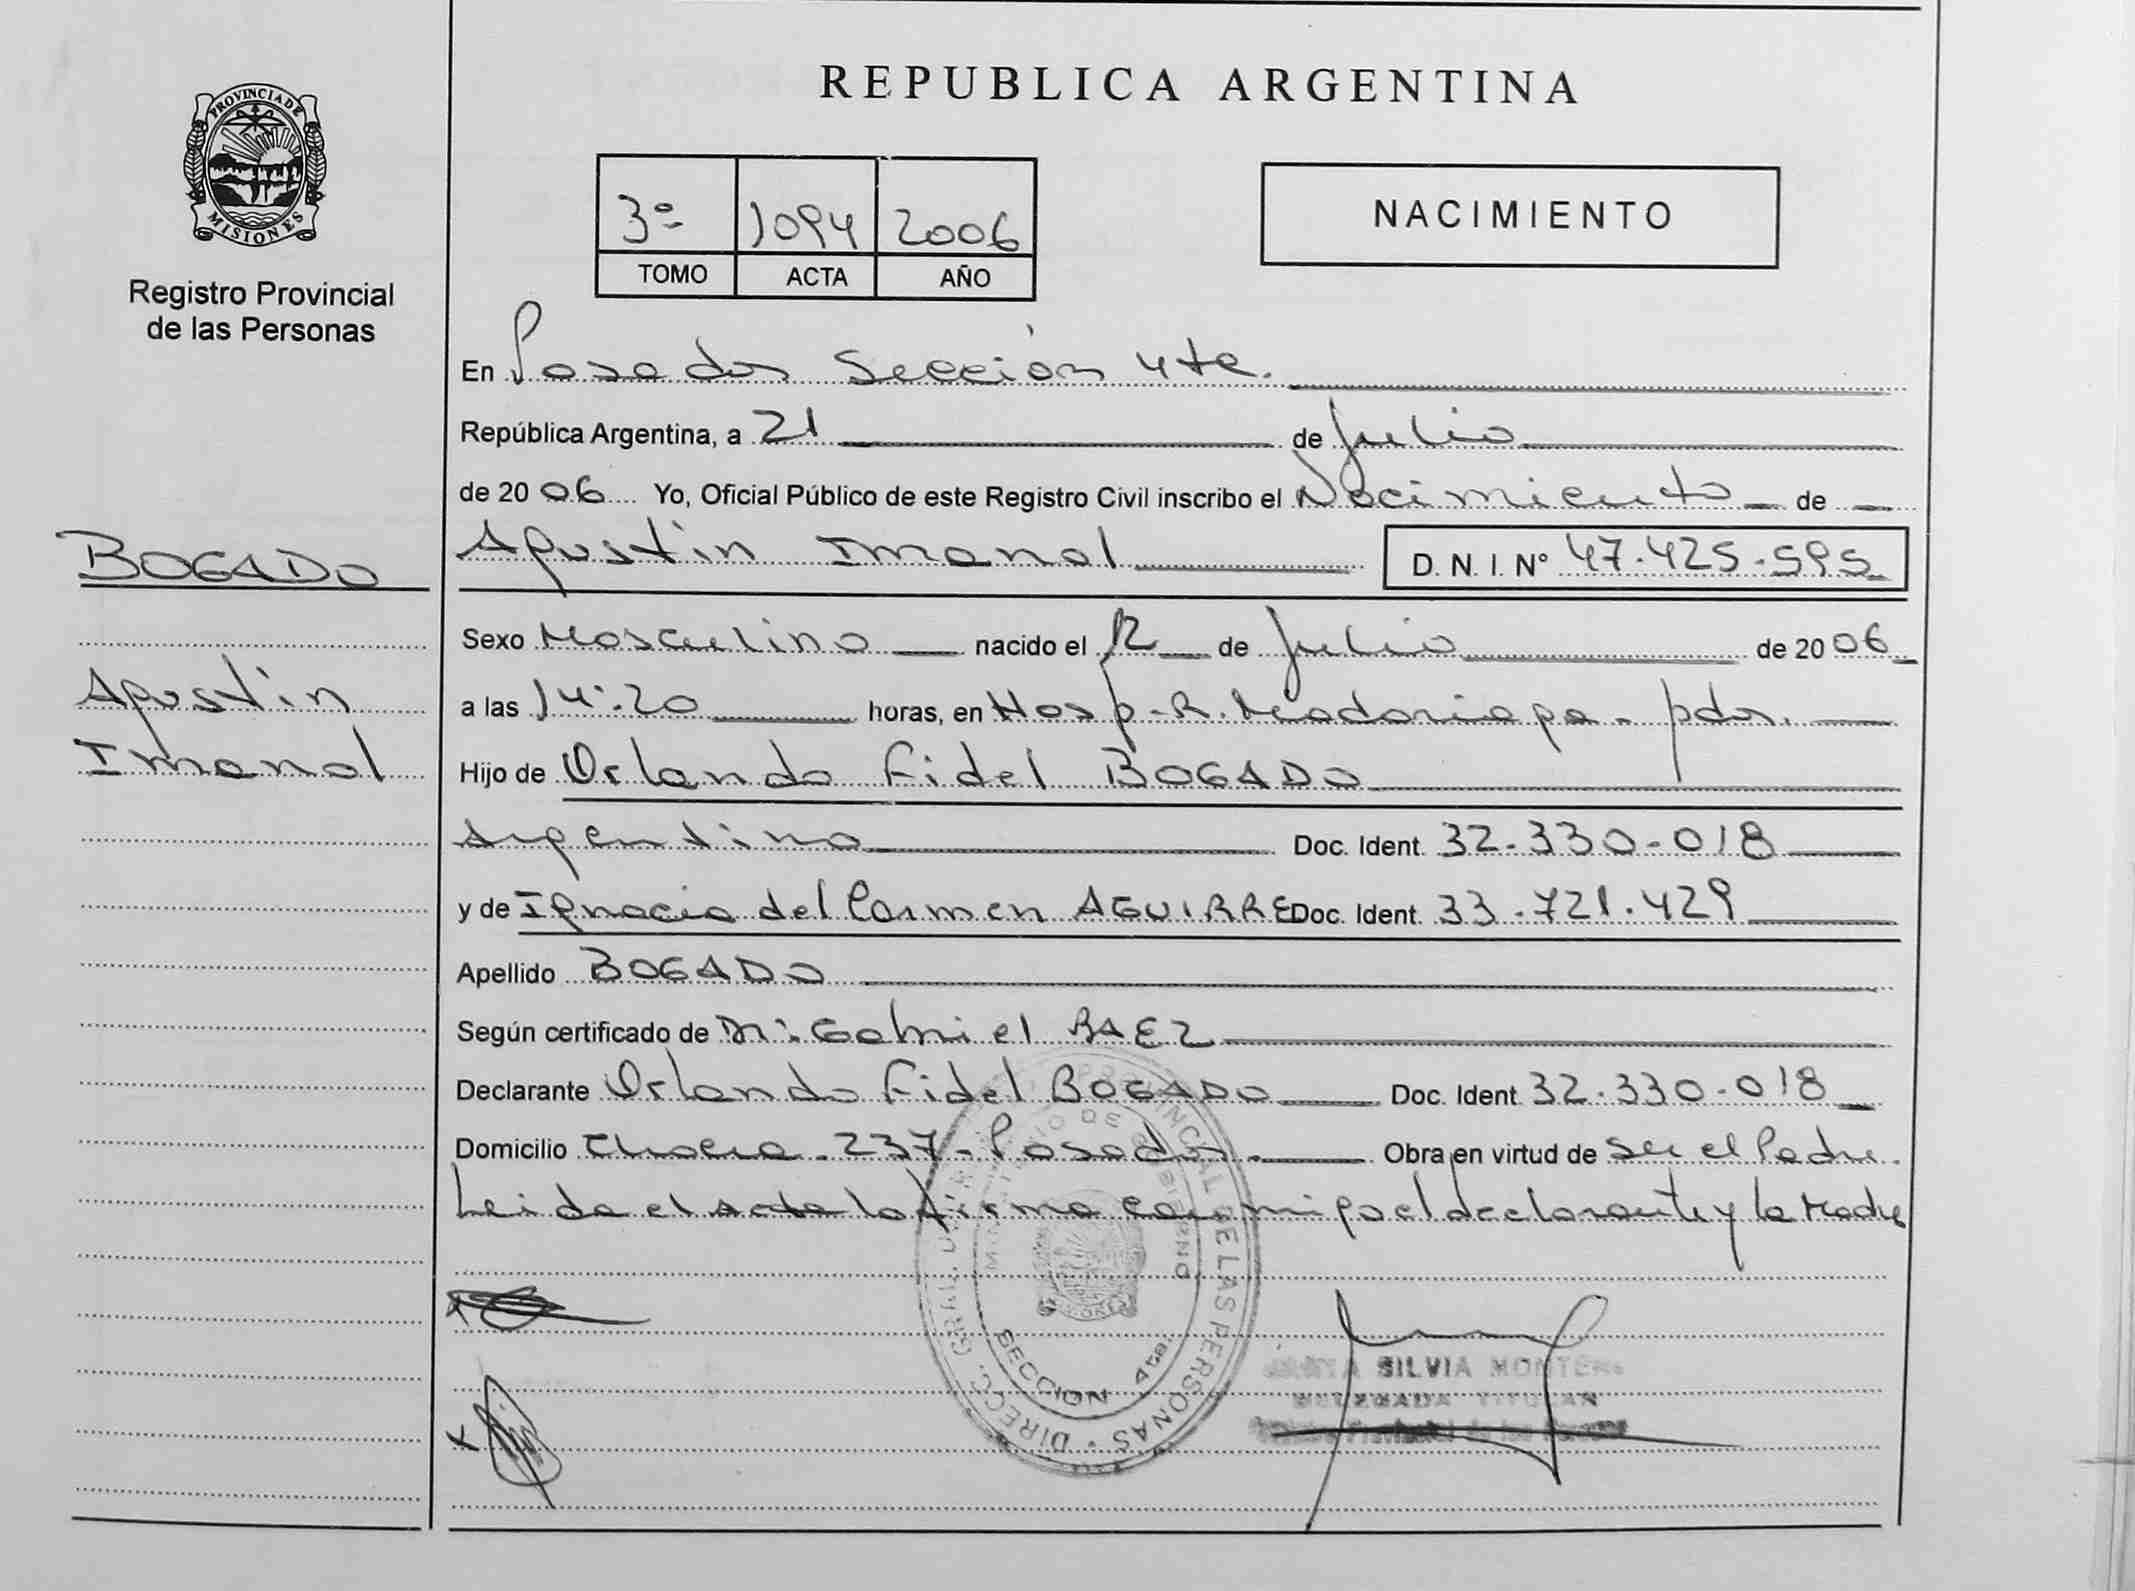 REPUBLICA ARGENTINA
PROVINCIA DE MISIONES
Registro Provincial
de las Personas
3º 1094 2006
TOMO ACTA AÑO
NACIMIENTO
En Posadas Sección 4ta.
República Argentina, a 21 de Julio
de 2006 Yo, Oficial Público de este Registro Civil inscribo el Nacimiento de
BOGADO
Agustin Imanol
D. N. I. Nº 47.425.595
Sexo Masculino nacido el 12 de Julio de 2006
Agustin
Imanol
a las 14:20 horas, en Hosp. R. Madariaga. pdas.
Hijo de Orlando Fidel BOGADO
Argentino Doc. Ident. 32.330.018
y de Ignacia del Carmen AGUIRRE Doc. Ident. 33.721.429
Apellido BOGADO
Según certificado de Gabriel BAEZ
Declarante Orlando Fidel BOGADO Doc. Ident. 32.330.018
Domicilio 237 - Posadas. Obra en virtud de ser el Padre.
Leida el acta la firma conmigo el declarante y la Madre
DIRECC. GRAL. PROVINCIAL DE LAS PERSONAS
MINISTERIO DE GOBIERNO
SECCION 4ta.
SILVIA
DELEGADA TITULAR